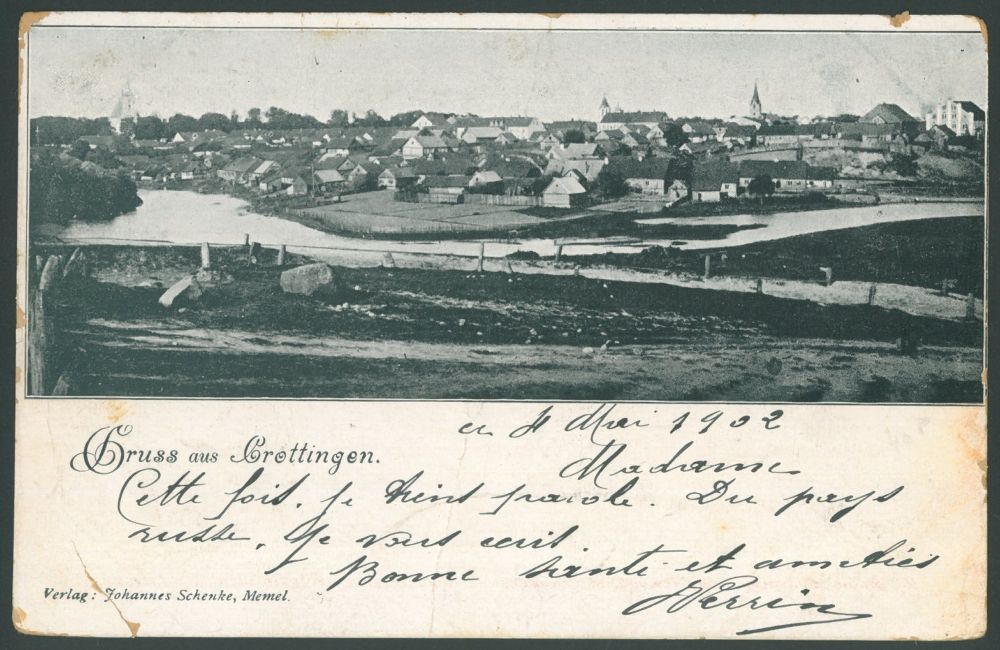 4 Mai 1902
Gruss aus Crottingen.
Madame
Cette fois, je tiens parole. Du pays
russe, je vous écris
Bonne santé et amitiés
Perrin
Verlag: Johannes Schenke, Memel.